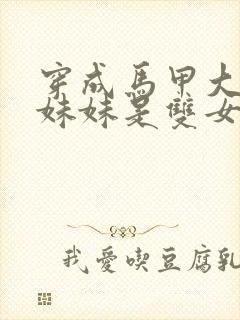 穿成馬甲大
妹妹是雙女
我愛喫豆腐乳